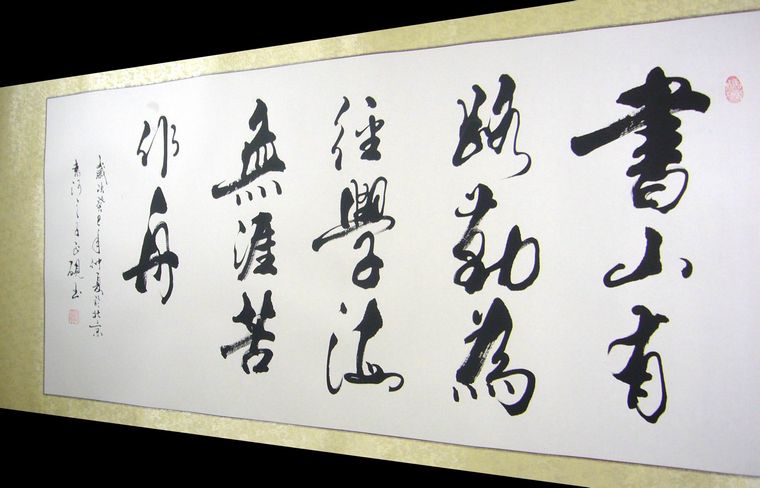 書山有
路勤為
徑學海
無涯苦
作舟
歲次癸巳年仲夏於北京